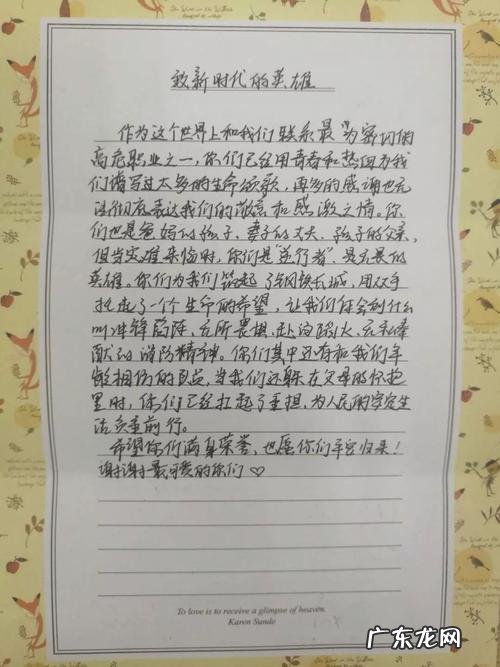 致新时代的英雄
作为这个世界上和我们联系最为密切的
高危职业之一，你们已经用青春和热血为我
们谱写过太多的生命颂歌，再多的感谢也无
法彻底表达我们的敬意和感激之情。你
们也是爸妈的孩子、妻子的丈夫、孩子的父亲，
但当灾难来临时，你们是“逆行者”，是无畏的
英雄。你们为我们筑起了钢铁长城，用双手
托起了一个生命的希望，让我们体会到什么
叫冲锋陷阵、无所畏惧、赴汤蹈火、无私奉
献的消防精神。你们其中还有和我们年
龄相仿的队员，当我们还躲在父母的怀抱
里时，你们已经扛起了重担，为人民的安定生
活负重前行。
希望你们满身荣誉，也愿你们平安归来！
谢谢最可爱的你们♡
To love is to receive a glimpse of heaven.
Karen Sunde
广东龙网